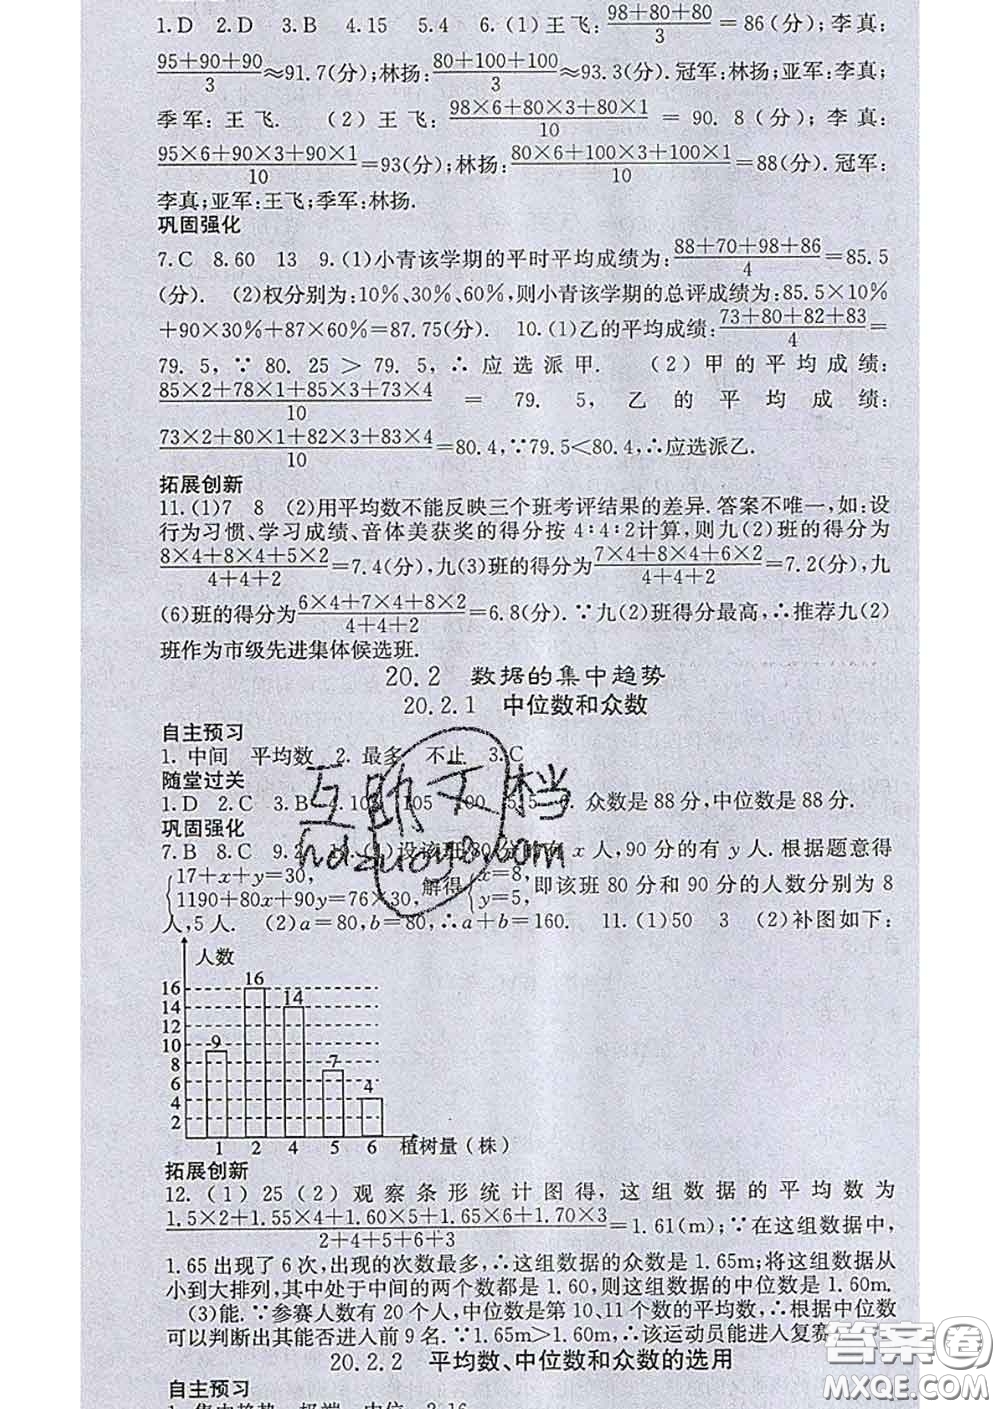 1.D 2.D 3.B 4.15 5.4 6.(1)王飞:(98+80+80)/3=86(分);李真:
(95+90+90)/3≈91.7(分);林扬:(80+100+100)/3≈93.3(分).冠军:林扬;亚军:李真;
季军:王飞. (2)王飞:(98×6+80×3+80×1)/10=90.8(分);李真:
(95×6+90×3+90×1)/10=93(分);林扬:(80×6+100×3+100×1)/10=88(分).冠军:
李真;亚军:王飞;季军:林扬.
巩固强化
7.C 8.60 13 9.(1)小青该学期的平时平均成绩为:(88+70+98+86)/4=85.5
(分). (2)权分别为:10%、30%、60%,则小青该学期的总评成绩为:85.5×10%
+90×30%+87×60%=87.75(分). 10.(1)乙的平均成绩:(73+80+82+83)/4=
79.5,∵80.25>79.5,∴应选派甲. (2)甲的平均成绩:
(85×2+78×1+85×3+73×4)/10=79.5,乙的平均成绩:
(73×2+80×1+82×3+83×4)/10=80.4,∵79.5<80.4,∴应选派乙.
拓展创新
11.(1)7 8 (2)用平均数不能反映三个班考评结果的差异.答案不唯一,如:设
行为习惯、学习成绩、音体美获奖的得分按4:4:2计算,则九(2)班的得分为
(8×4+8×4+5×2)/(4+4+2)=7.4(分),九(3)班的得分为(7×4+8×4+6×2)/(4+4+2)=7.2(分),九
(6)班的得分为(6×4+7×4+8×2)/(4+4+2)=6.8(分).∵九(2)班得分最高,∴推荐九(2)
班作为市级先进集体候选班.
20.2 数据的集中趋势
20.2.1 中位数和众数
自主预习
1.中间 平均数 2.最多 不止 3.C
随堂过关
1.D 2.C 3.B 众数是88分,中位数是88分.
巩固强化
7.B 8.C 9.2 (1)设该班80分的有x人,90分的有y人.根据题意得
{17+x+y=30, 1190+80x+90y=76×30, 解得{x=8, y=5, 即该班80分和90分的人数分别为8
人,5人. (2)a=80,b=80,∴a+b=160. 11.(1)50 3 (2)补图如下:
人数
16 14 12 10 8 6 4 2
9 16 14 7 4
1 2 4 5 6 植树量(株)
拓展创新
12.(1)25(2)观察条形统计图得,这组数据的平均数为
(1.5×2+1.55×4+1.60×5+1.65×6+1.70×3)/(2+4+5+6+3)=1.61(m);∵在这组数据中,
1.65出现了6次,出现的次数最多,∴这组数据的众数是1.65m;将这组数据从
小到大排列,其中处于中间的两个数都是1.60,则这组数据的中位数是1.60m.
(3)能.∵参赛人数有20个人,中位数是第10、11个数的平均数,∴根据中位数
可以判断出其能否进入前9名.∵1.65m>1.60m,∴该运动员能进入复赛
20.2.2 平均数、中位数和众数的选用
自主预习
互助文档
hdzuoye.com
答案圈
MXQE.COM